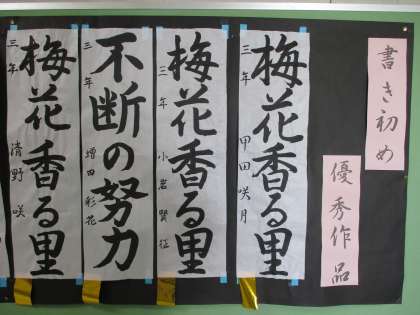 書き初め
優秀作品
梅花香る里
三年 甲田咲月
梅花香る里
三年 小岩賢征
不断の努力
三年 増田彩花
梅花香る里
三年 清野咲